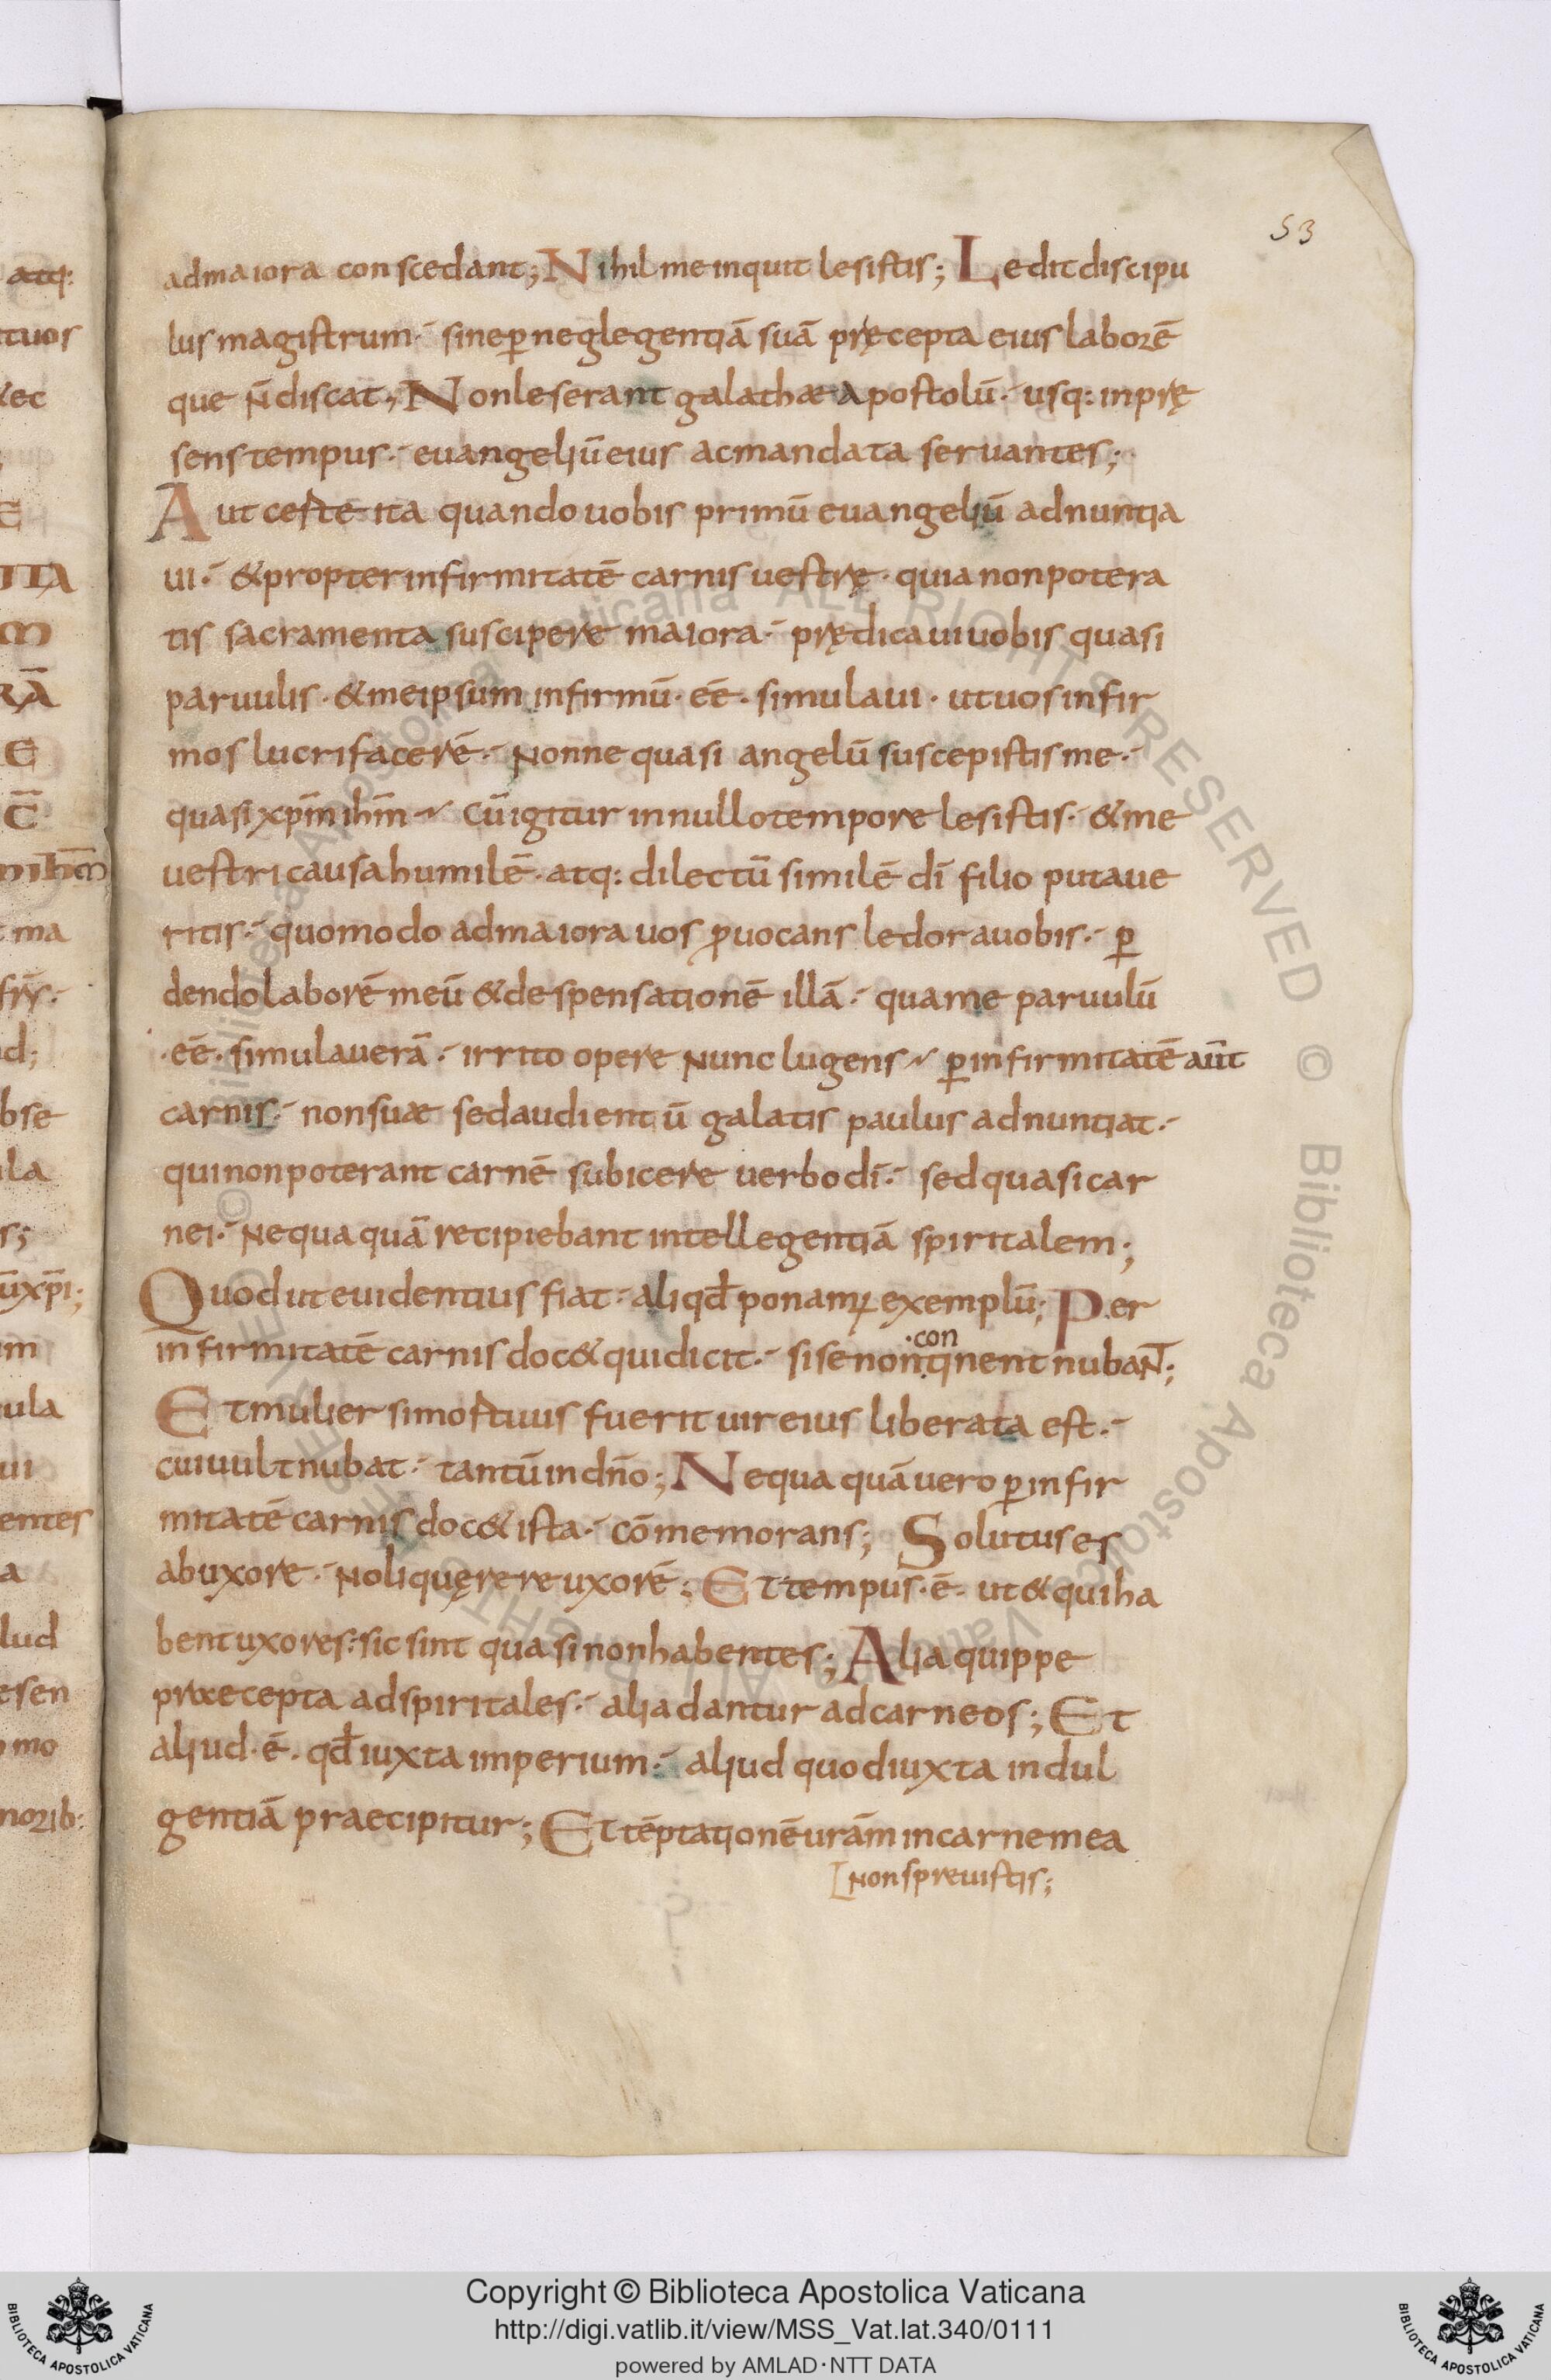 53
admaiora conscedant; Nihil me inquit lesistis; Ledit discipu
lus magistrum·- sine p̱ neglegentiā suā pręcepta eius laborē
que n̄ discat; Non leserant galathae apostolū·- usq: inprę
sens tempus·- euangeliū eius ac mandata seruantes;
Aut certe ita quando uobis primū euangeliū adnuntia
ui·- & propter infirmitatē carnis uestrę· quia non potera
tis sacramenta suscipere maiora·- prędicaui uobis quasi
paruulis· & me ipsum infirmū· eē· simulaui· ut uos infir
mos lucrifacerē·- Nonne quasi angelū suscepistis me·-
quasi xp̄m ih̄m ~ Cū igitur in nullo tempore lesistis·- & me
uestri causa humilē· atq: dilectū similē dī filio putaue
ritis·- quomodo ad maiora uos ꝓuocans ledor a uobis·- ꝑ
dendo laborē meū & despensationē illā·- qua me paruulū
·eē· simulauerā·- irrito opere Nunc lugens ~ ꝑ infirmitatē aūt
carnis·- non suae sed audientiū galatis paulus adnuntiat·-
qui non poterant carnē subicere uerbo dī·- sed quasi car
nei·- Nequaquā recipiebant intellegentiā spiritalem;
Quod ut euidentius fiat·- aliqd̄ ponamꝰ exemplū; Per
infirmitatē carnis doc& qui dicit·- si se non tinent nubaNT;
·con
Et mulier si mortuus fuerit uir eius liberata est·-
cui uult nubat·- tantū in dn̄o; Nequaquā uero ꝑ infir
mitatē carnis doc& ista·- cōmemorans; Solutus es
ab uxore·- Noli quęrere uxorē; Et tempus·ē· ut & qui ha
bent uxores·- sic sint quasi non habentes; Alia quippe
praecepta ad spiritales·- alia dantur ad carneos; Et
aliud·ē· qd̄ iuxta imperium·- aliud quod iuxta indul
gentiā praecipitur; Et tēptationē urām in carne mea
[Non spreuistis;
atq:
tuos
ec
E
ITA
m
RĀ
E
C̄
m ih̄m
ma
fr̄ȳ·-
d;
bse
la
s;
ūxp̄i;
m
ula
ui
entes
a
lud
esen
mo
norib:
Copyright © Biblioteca Apostolica Vaticana
http://digi.vatlib.it/view/MSS_Vat.lat.340/0111
powered by AMLAD·NTT DATA
BIBLIOTECA APOSTOLICA VATICANA
BIBLIOTECA APOSTOLICA VATICANA
© Biblioteca Apostolica Vaticana ALL RIGHTS RESERVED © Biblioteca Apostolica Vaticana ALL RIGHTS RESERVED